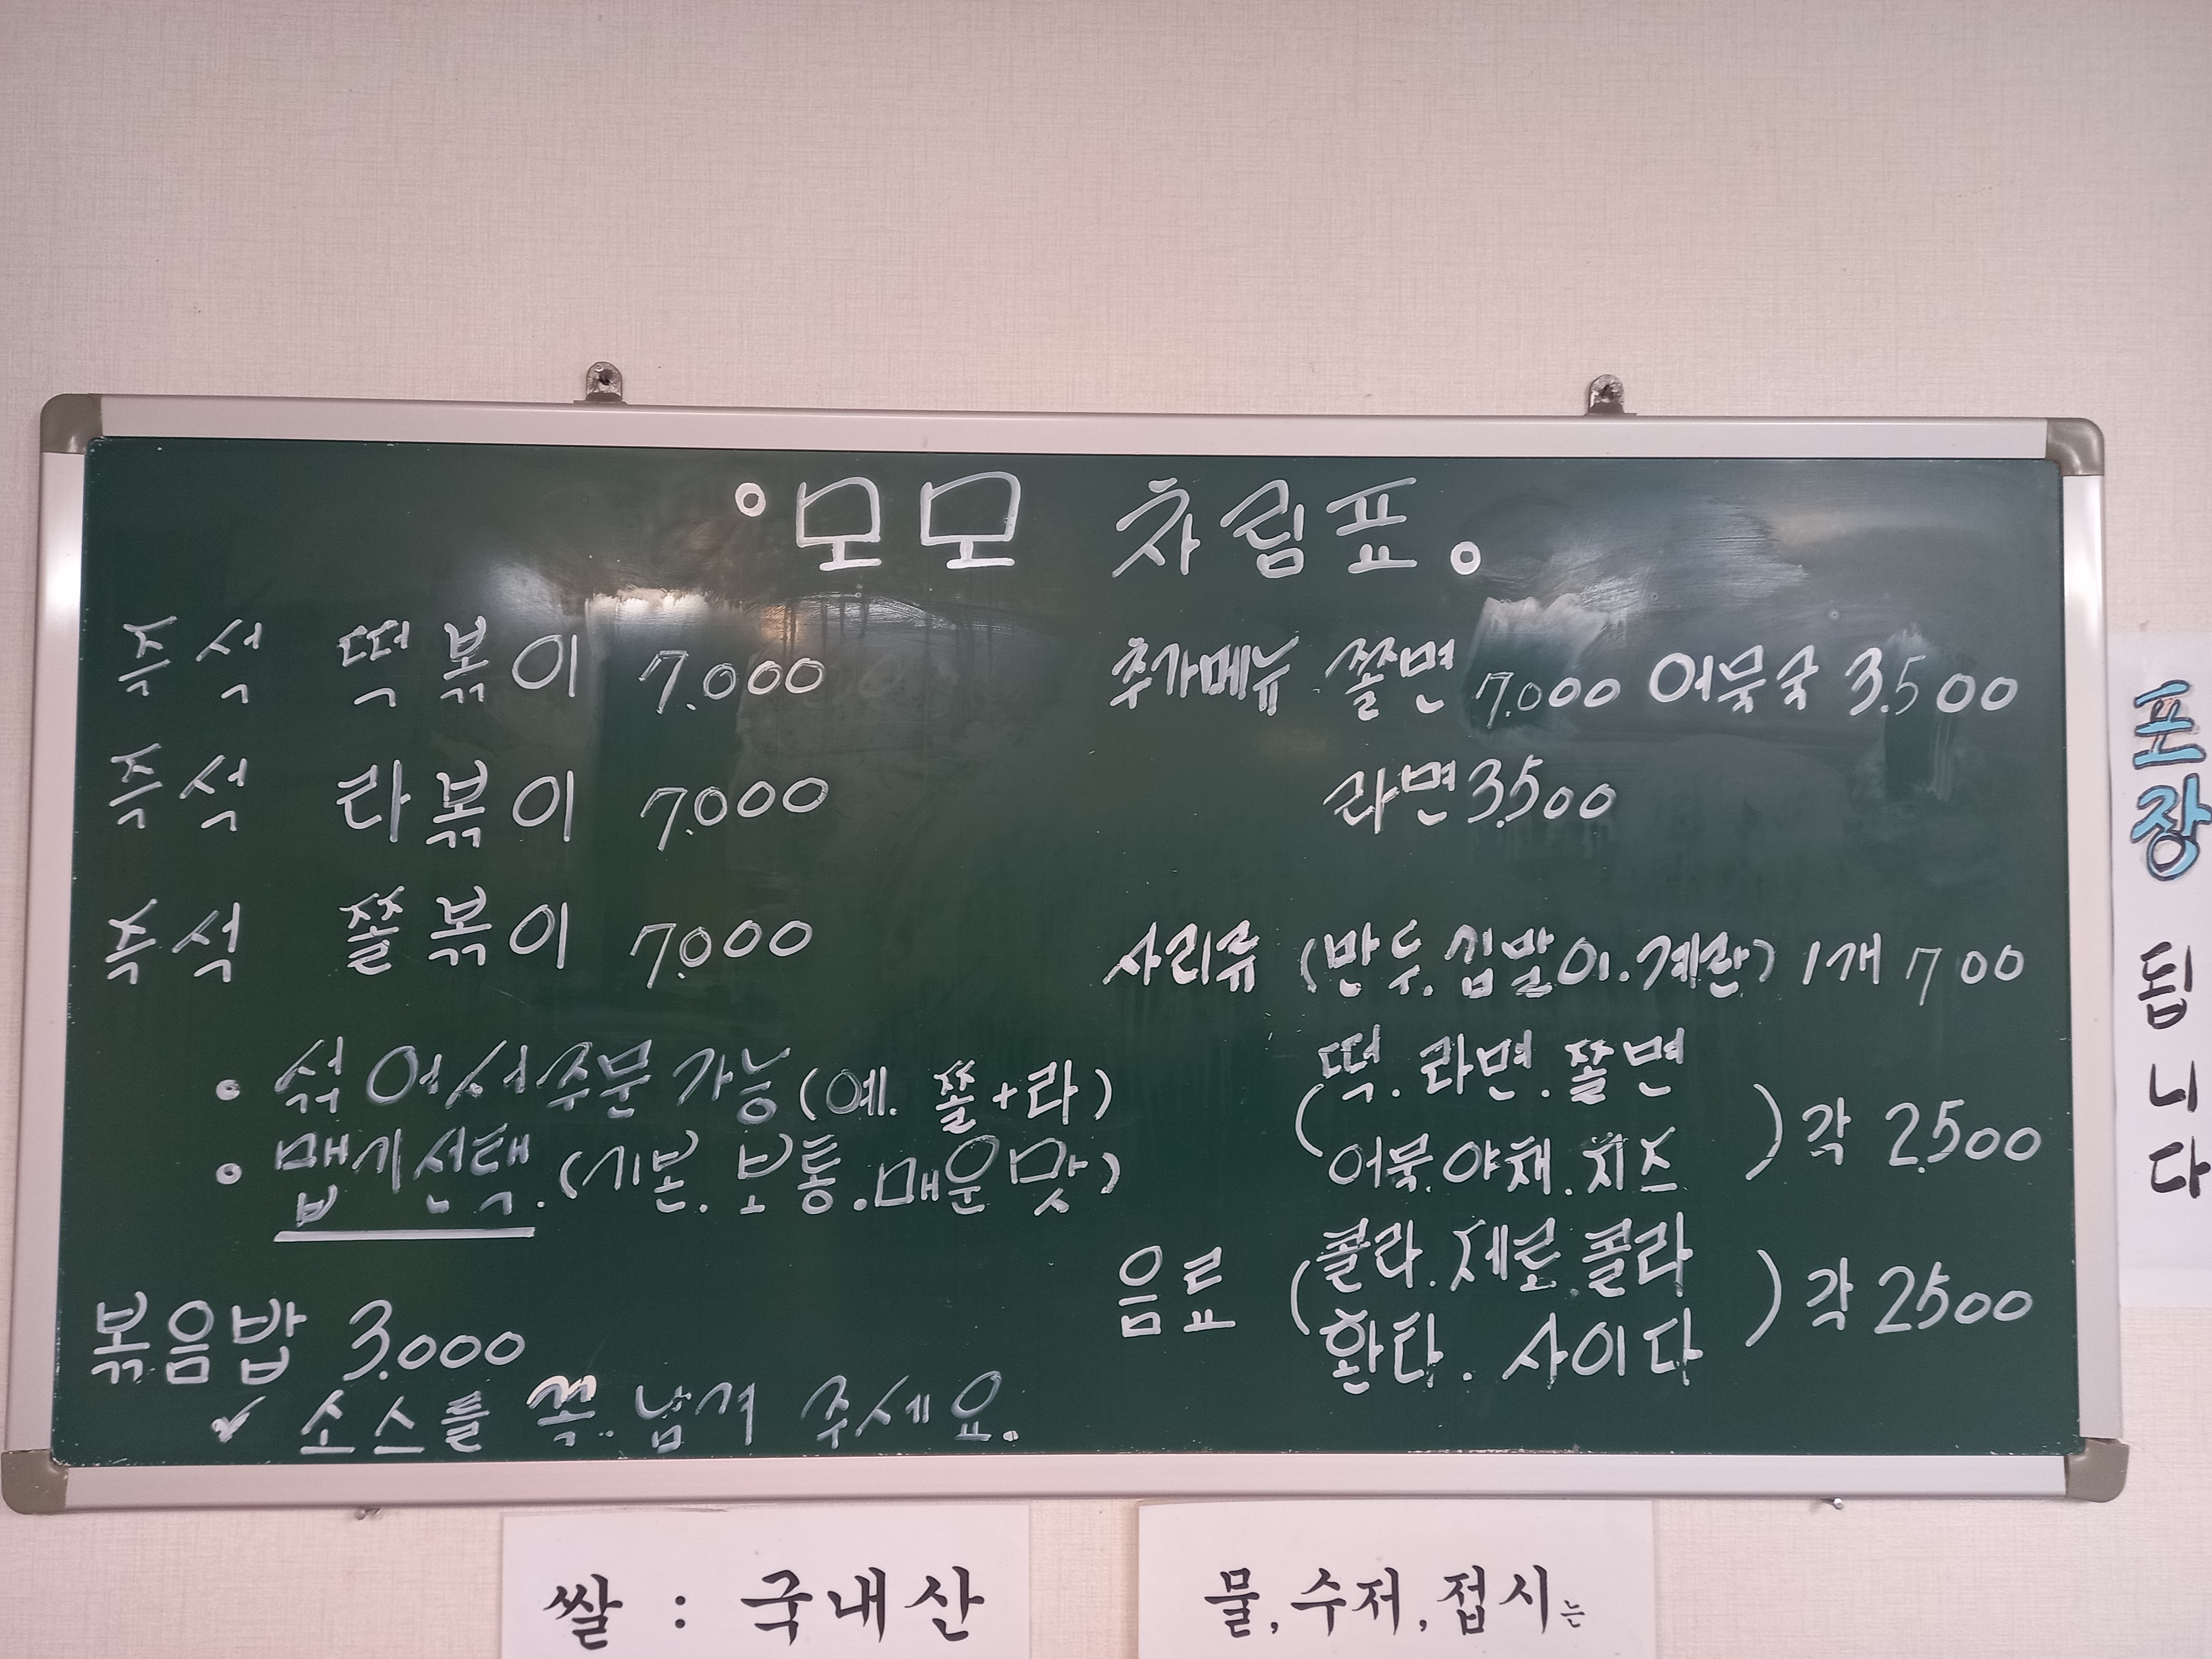 °모모 차림표。
즉석 떡볶이 7.000
즉석 라볶이 7.000
즉석 쫄볶이 7.000
• 섞어서 주문 가능 (예. 쫄+라)
• 맵기선택. (기본. 보통. 매운맛)
볶음밥 3.000
✓ 소스를 꼭. 남겨 주세요.
추가메뉴. 쫄면 7.000 어묵국 3.500
라면 3.500
사리류 (만두. 김말이. 계란) 1개 700
(떡. 라면. 쫄면
어묵. 야채. 치즈) 각 2.500
음료 (콜라. 제로. 콜라
환타. 사이다) 각 2500
포장 됩니다
쌀 : 국내산
물, 수저, 접시는